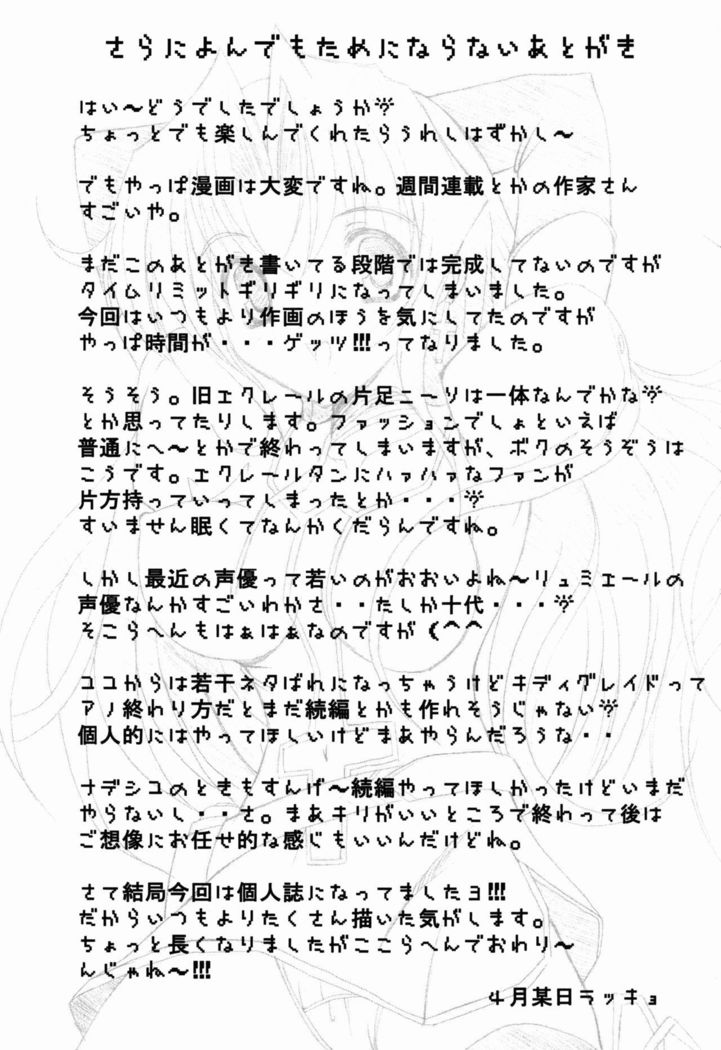 さらによんでもためにならないあとがき
はい～どうでしたでしょうか？
ちょっとでも楽しんでくれたらうれしはずかし～
でもやっぱ漫画は大変ですね。週間連載とかの作家さん
すごいや。
まだこのあとがき書いてる段階では完成してないのですが
タイムリミットギリギリになってしまいました。
今回はいつもより作画のほうを気にしてたのですが
やっぱ時間が・・・ゲッツ!!!ってなりました。
そうそう。旧エクレールの片足ニーソは一体なんでかな？
とか思ってたりします。ファッションでしょといえば
普通にへ～とかで終わってしまいますが、ボクのそうぞうは
こうです。エクレールタンにハァハァなファンが
片方持っていってしまったとか・・・？
すいません眠くてなんかくだらんですね。
しかし最近の声優って若いのがおおいよね～リュミエールの
声優なんかすごいわかさ・・たしか十代・・・？
そこらへんもはぁはぁなのですが（^^
ココからは若干ネタばれになっちゃうけどキディグレイドって
アノ終わり方だとまだ続編とかも作れそうじゃない？
個人的にはやってほしいけどまあやらんだろうな・・
ナデシコのときもすんげ～続編やってほしかったけどいまだ
やらないし・・さ。まあキリがいいところで終わって後は
ご想像にお任せ的な感じもいいんだけどね。
さて結局今回は個人誌になってましたヨ!!!
だからいつもよりたくさん描いた気がします。
ちょっと長くなりましたがここらへんでおわり～
んじゃね～!!!
4月某日ラッキョ